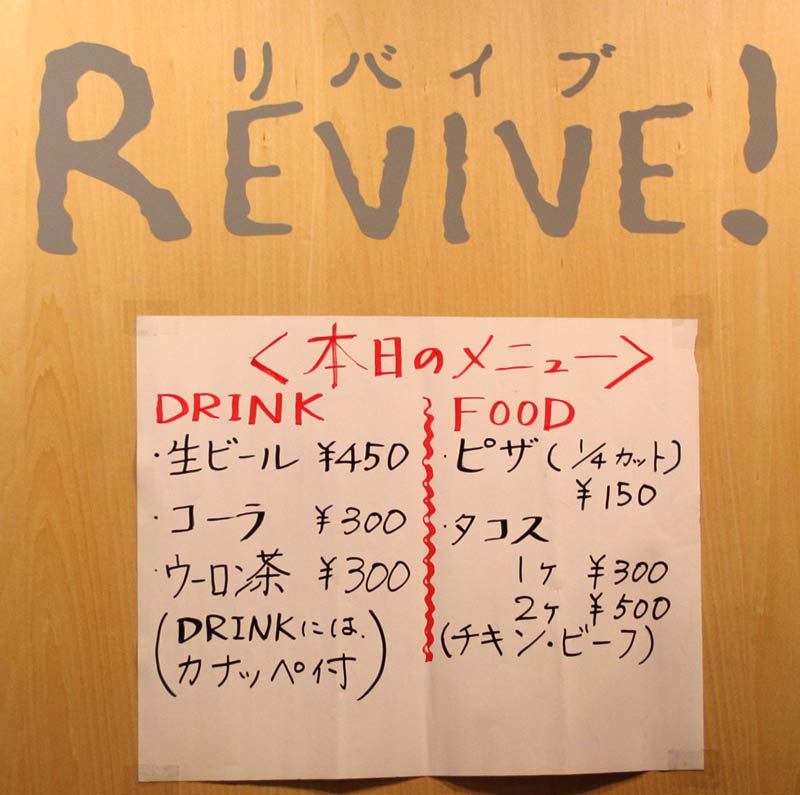 リバイブ
REVIVE!
<本日のメニュー>
DRINK
・生ビール ¥450
・コーラ ¥300
・ウーロン茶 ¥300
(DRINKには、
カナッペ付)
FOOD
・ピザ(1/4カット)
¥150
・タコス
1ヶ ¥300
2ヶ ¥500
(チキン・ビーフ)